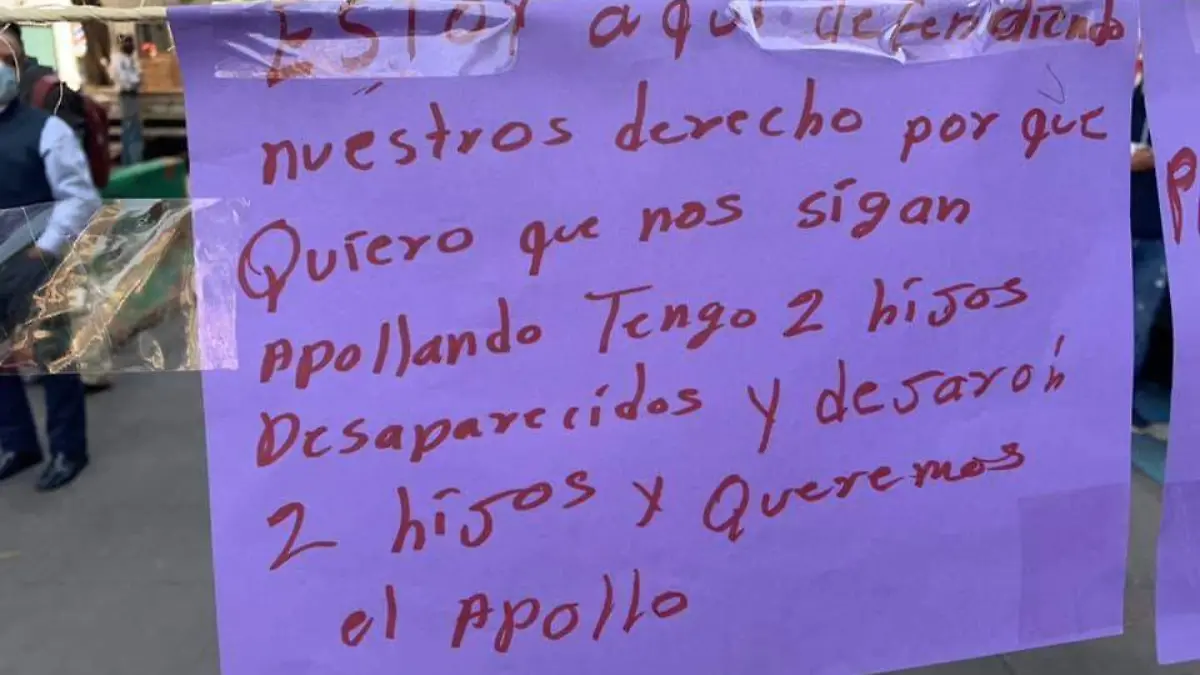 Estoy aqui defendiendo
nuestros derecho por que
Quiero que nos sigan
Apollando Tengo 2 hijos
Desaparecidos y desarón
2 hijos y Queremos
el Apollo